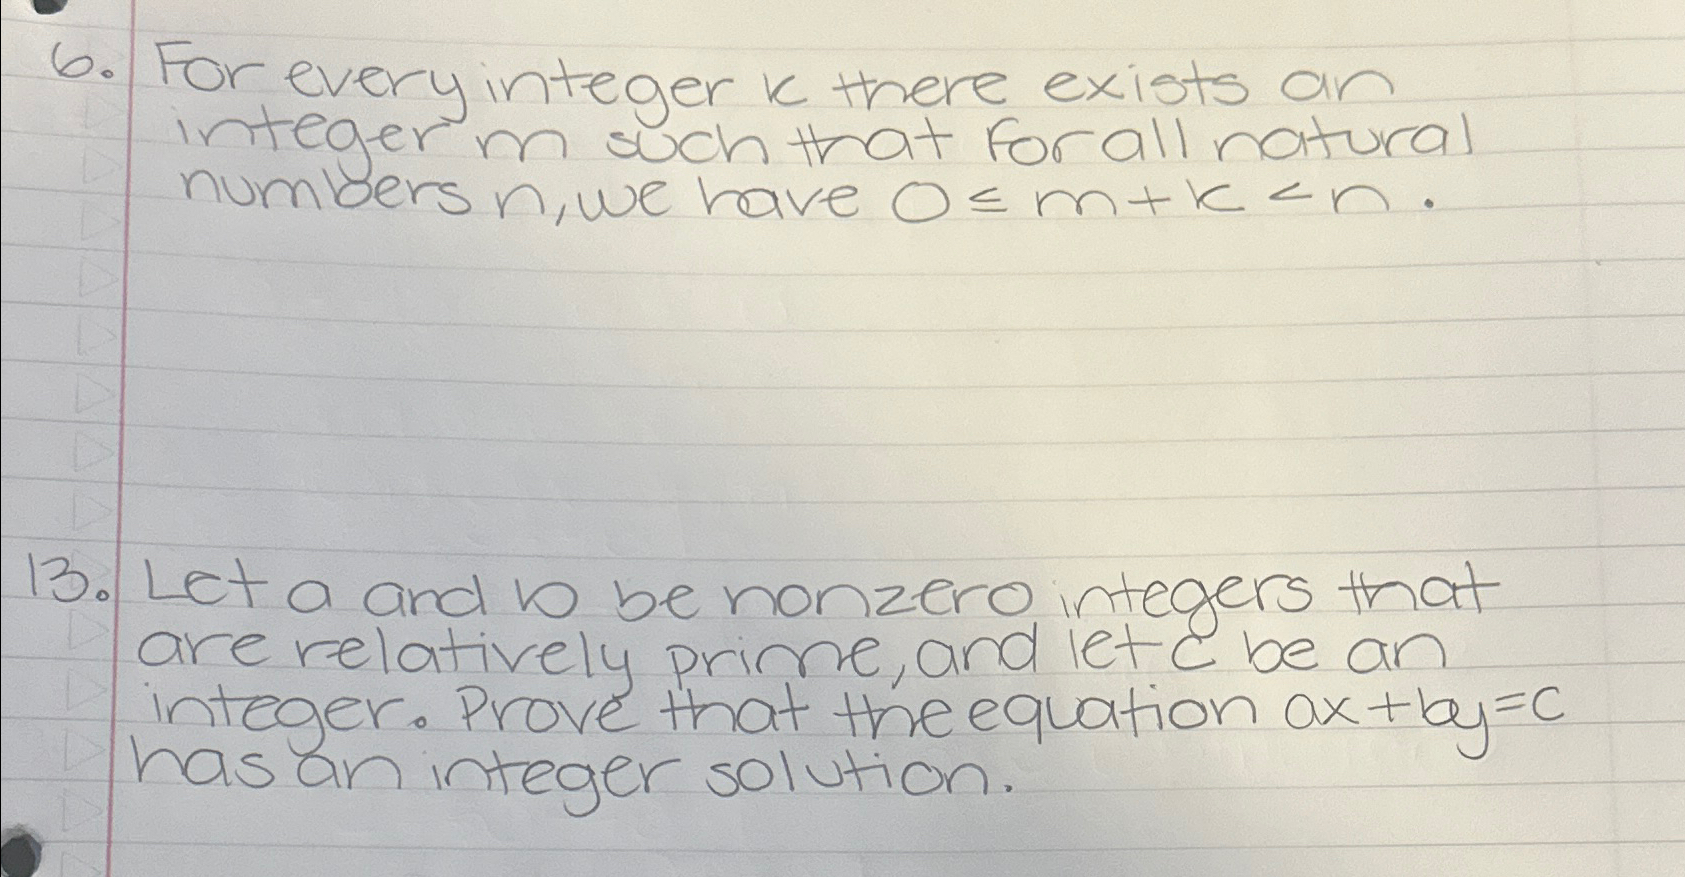 6. For every integer k there exists an
integer m such that for all natural
numbers n, we have 0 ≤ m + k < n .
13. Let a and b be nonzero integers that
are relatively prime, and let c be an
integer. Prove that the equation ax + by = c
has an integer solution.